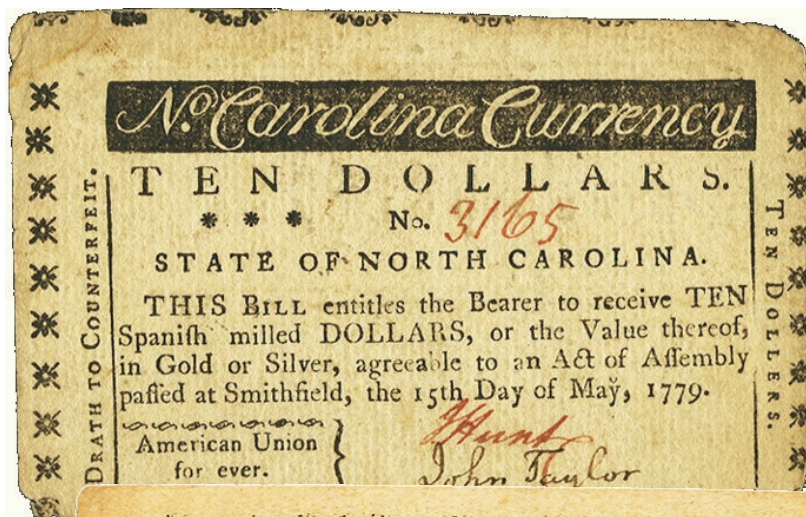 No. Carolina Currency
TEN DOLLARS.
* * * No. 3165
STATE OF NORTH CAROLINA.
THIS BILL entitles the Bearer to receive TEN
Spaniſh milled DOLLARS, or the Value thereof,
in Gold or Silver, agreeable to an Act of Aſſembly
paſſed at Smithfield, the 15th Day of May, 1779.
American Union
for ever.
JHunt
John Taylor
DRATH TO COUNTERFEIT.
TEN DOLLERS.